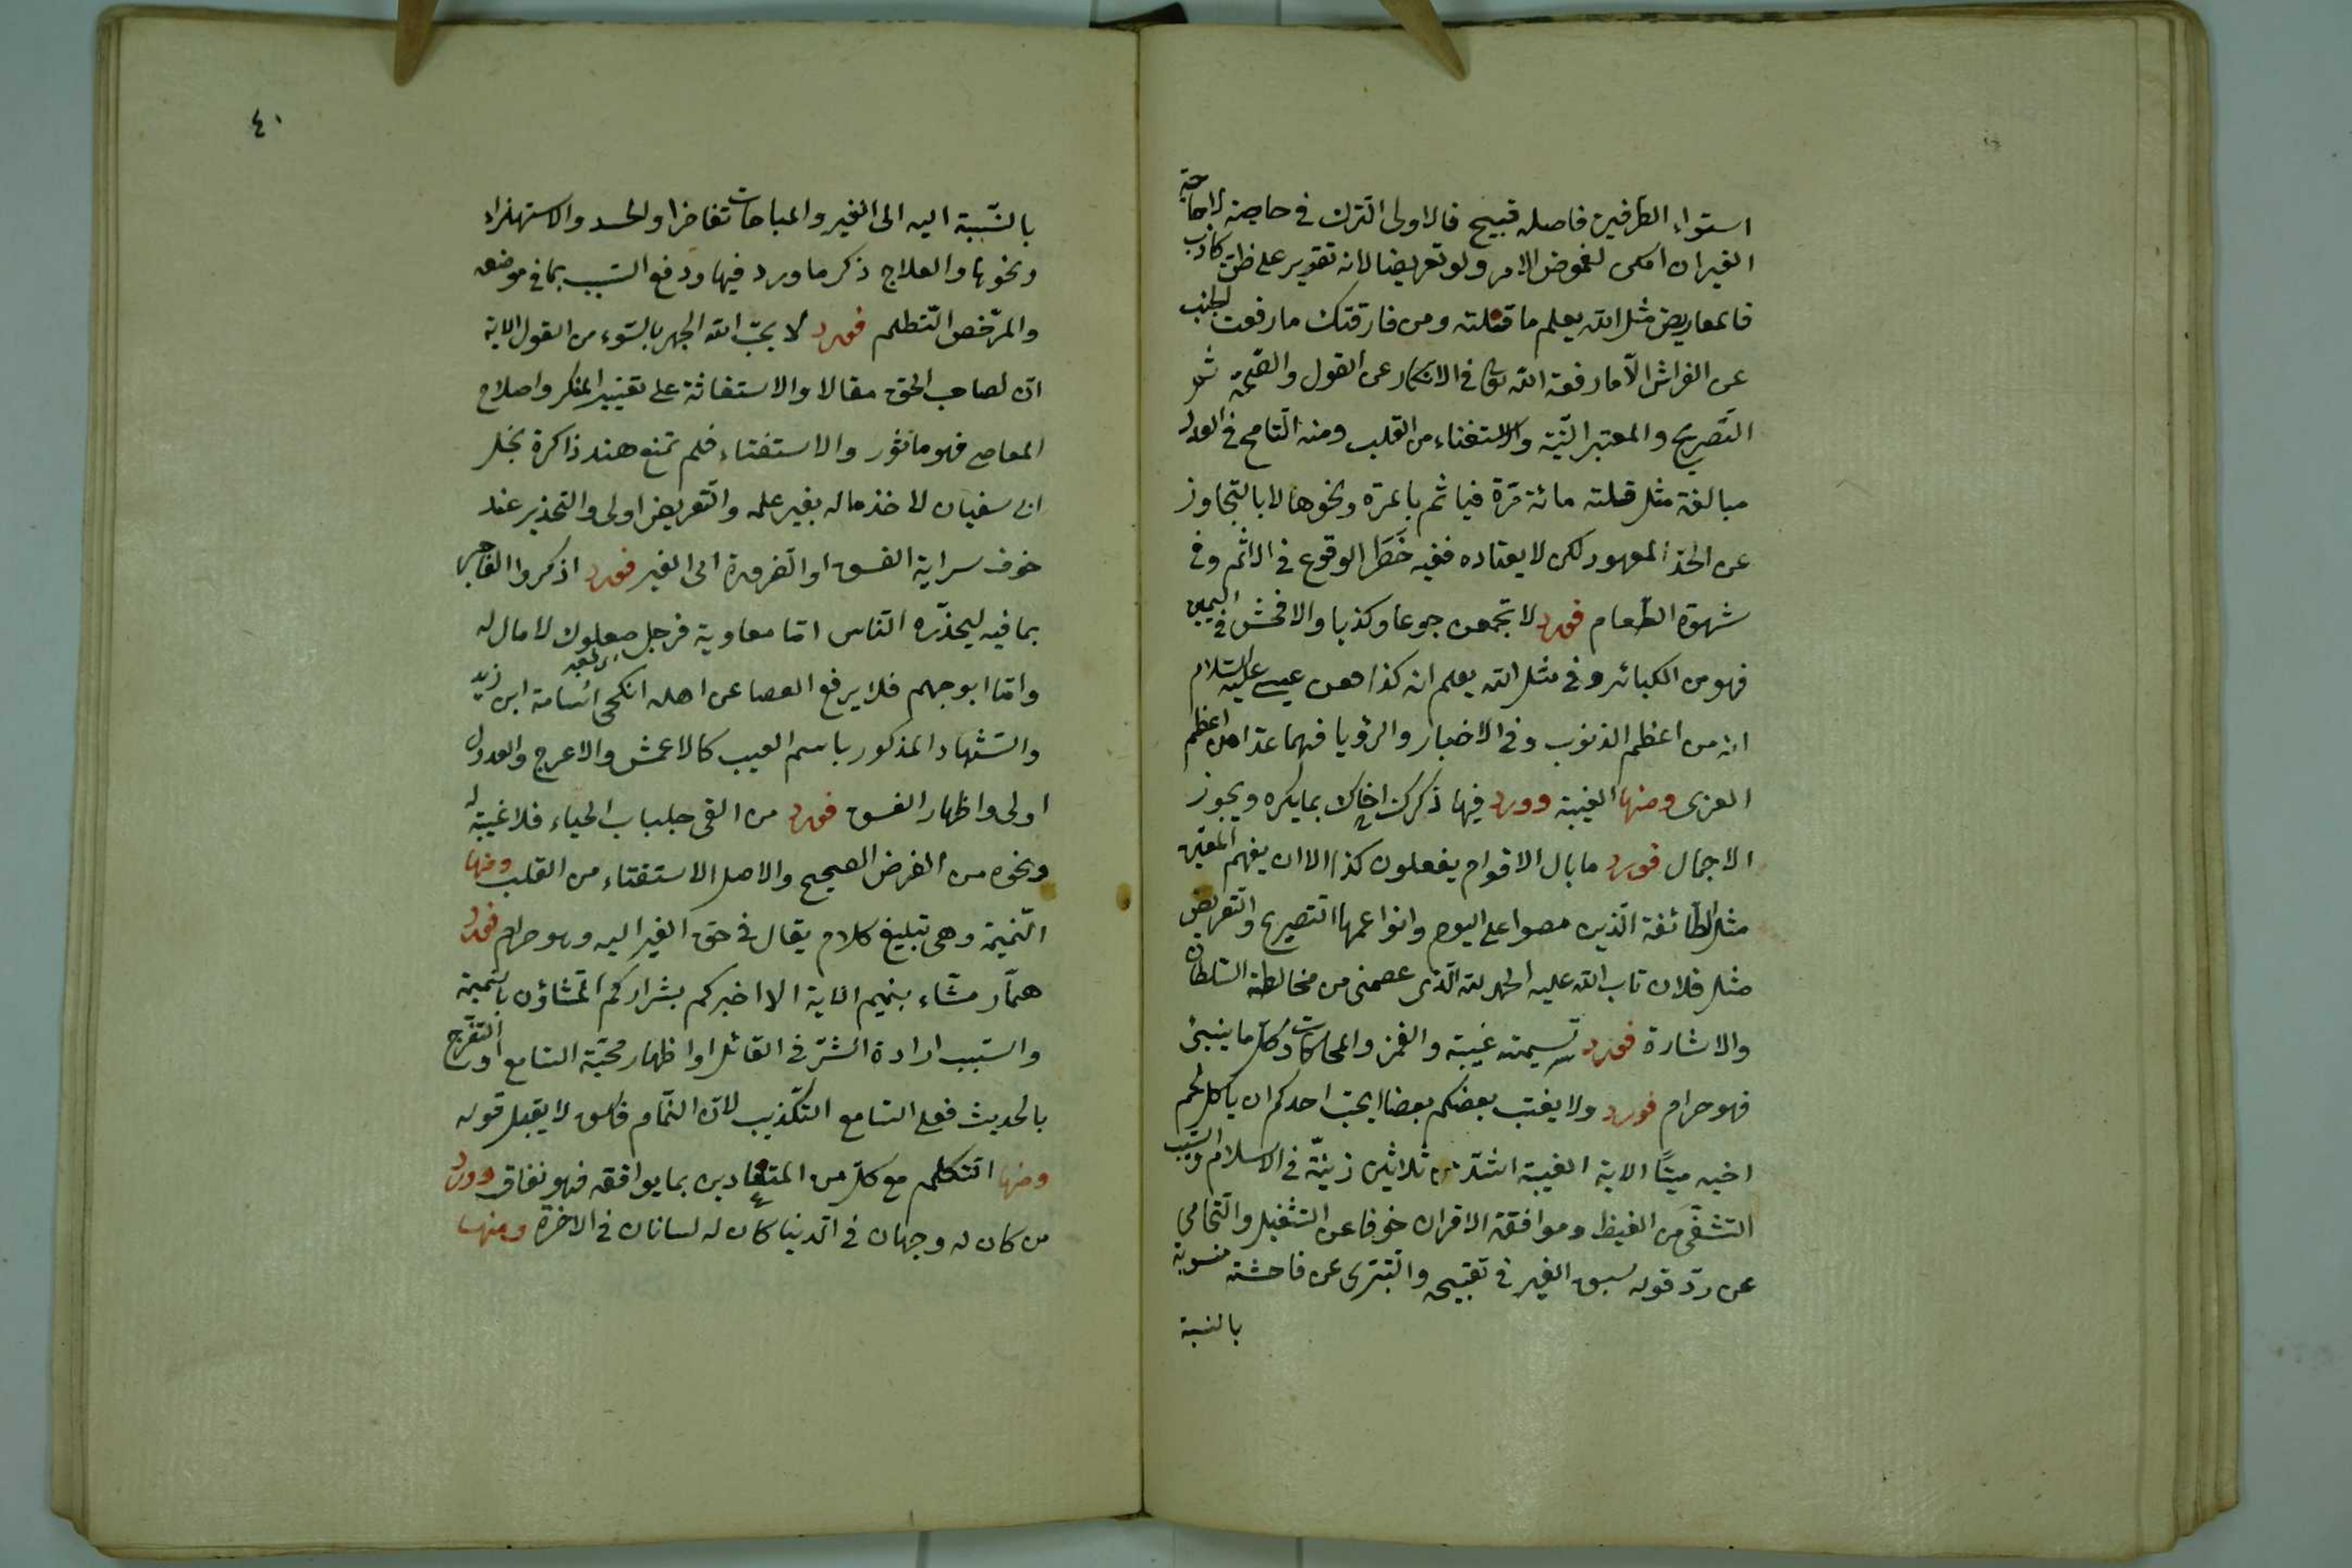 استواء الطرفين فاصله قبيح فالاولى الترك في حاجة لا حاجة
الغير ان امكن لغموض الامر ولو تعريضا لانه تقرير على ظن كاذب
فالمعاريض مثل الله يعلم ما قلته ومن فارقتك ما رفعت الجنب
عن الفراش الّا ما رفعه الله تعالى في الانكار عن القول والضيمة ثم
التّصريح والمعتبر النّيّة والاستفتاء من القلب ومنه التّسامح في العدد
مبالغة مثل قلته مائة مرّة فيأثم بالمرّة ونحوها لا بالتجاوز
عن الحد المعهود لكن لا يعتاده ففيه خَطَر الوقوع في الاثم وفي
شهوة الطّعام فورد لا تجمعن جوعا وكذبا والافحش في اليمين
فهو من الكبائر وفي مثل الله يعلم انه كذا فعن عيسى عليه السلام
انه من اعظم الذنوب وفي الاخبار والرؤيا فهما عدّا من اعظم
الفرى ومنها الغيبة وورد فيها ذكرك اخاك بما يكره ويجوز
الاجمال فورد ما بال الاقوام يفعلون كذا الا ان يفهم المعيّن
مثل الطّائفة الّذين مصوا على اليوم وانواعها التصريح والتعريض
مثل فلان تاب الله عليه الحمد لله الّذى عصمنى من مخالطة السّلطان
والاشارة فورد تسميته غيبة والغمز والمحاكات وكلّ ما ينبئ
فهو حرام فورد ولا يغتب بعضكم بعضا ايحبّ احدكم ان ياكل لحم
اخيه ميتًا الاية الغيبة اشدّ من ثلاثين زنيّة في الاسلام والسّبب
التشفّى من الغيظ وموافقة الاقران خوفا عن التثقيل والتّحامى
عن ردّ قوله لسبق الغير في تقبيحه والتّبرّى عن فاحشة منسوبة
بالنسبة
٤٠
بالنّسبة اليه الى الغير والمباهات تفاخرا والحسد والاستهزاء
ونحوها والعلاج ذكر ما ورد فيها ودفع السّبب بما في موضعه
والمرّخص التّظلم فورد لا يحبّ الله الجهر بالسّوء من القول الاية
انّ لصاحب الحق مقالا والاستغاثة على تغيير المنكر واصلاح
المعاصى فهو ماثور والاستفتاء فلم تمنع هند ذاكرة بخل
ابى سفيان لاخذ ماله بغير علمه والتّعريض اولى والتحذير عند
خوف سراية الفسق او الضّرورة الى الغير فورد اذكروا الفاجر
بما فيه ليحذّره النّاس امّا معاوية فرجل صعلوك لا مال له
وامّا ابو جهم فلا يرفع العصا عن اهله انكحى اسامة ابن زيد
واشتهاد المذكور باسم العيب كالاعمش والاعرج والعدول
اولى واظهار الفسق فورد من القى جلباب الحياء فلا غيبة له
ونحوه من الغرض الصحيح والاصل الاستفتاء من القلب ومنها
النّميمة وهى تبليغ كلام يقال في حق الغير اليه وهو حرام فورد
همّاز مشّاء بنميم الاية الا اخبركم بشراركم المشاؤن بالنّميمة
والسّبب ارادة الشّرّ في القائل او اظهار محبّة السّامع او التّفرّج
بالحديث فعلى السّامع التكذيب لانّ النّمّام فاسق لا يقبل قوله
ومنها التّكلم مع كلّ من المتعاديين بما يوافقه فهو نفاق وورد
من كان له وجهان في الدّنيا كان له لسانان في الاخرة ومنها